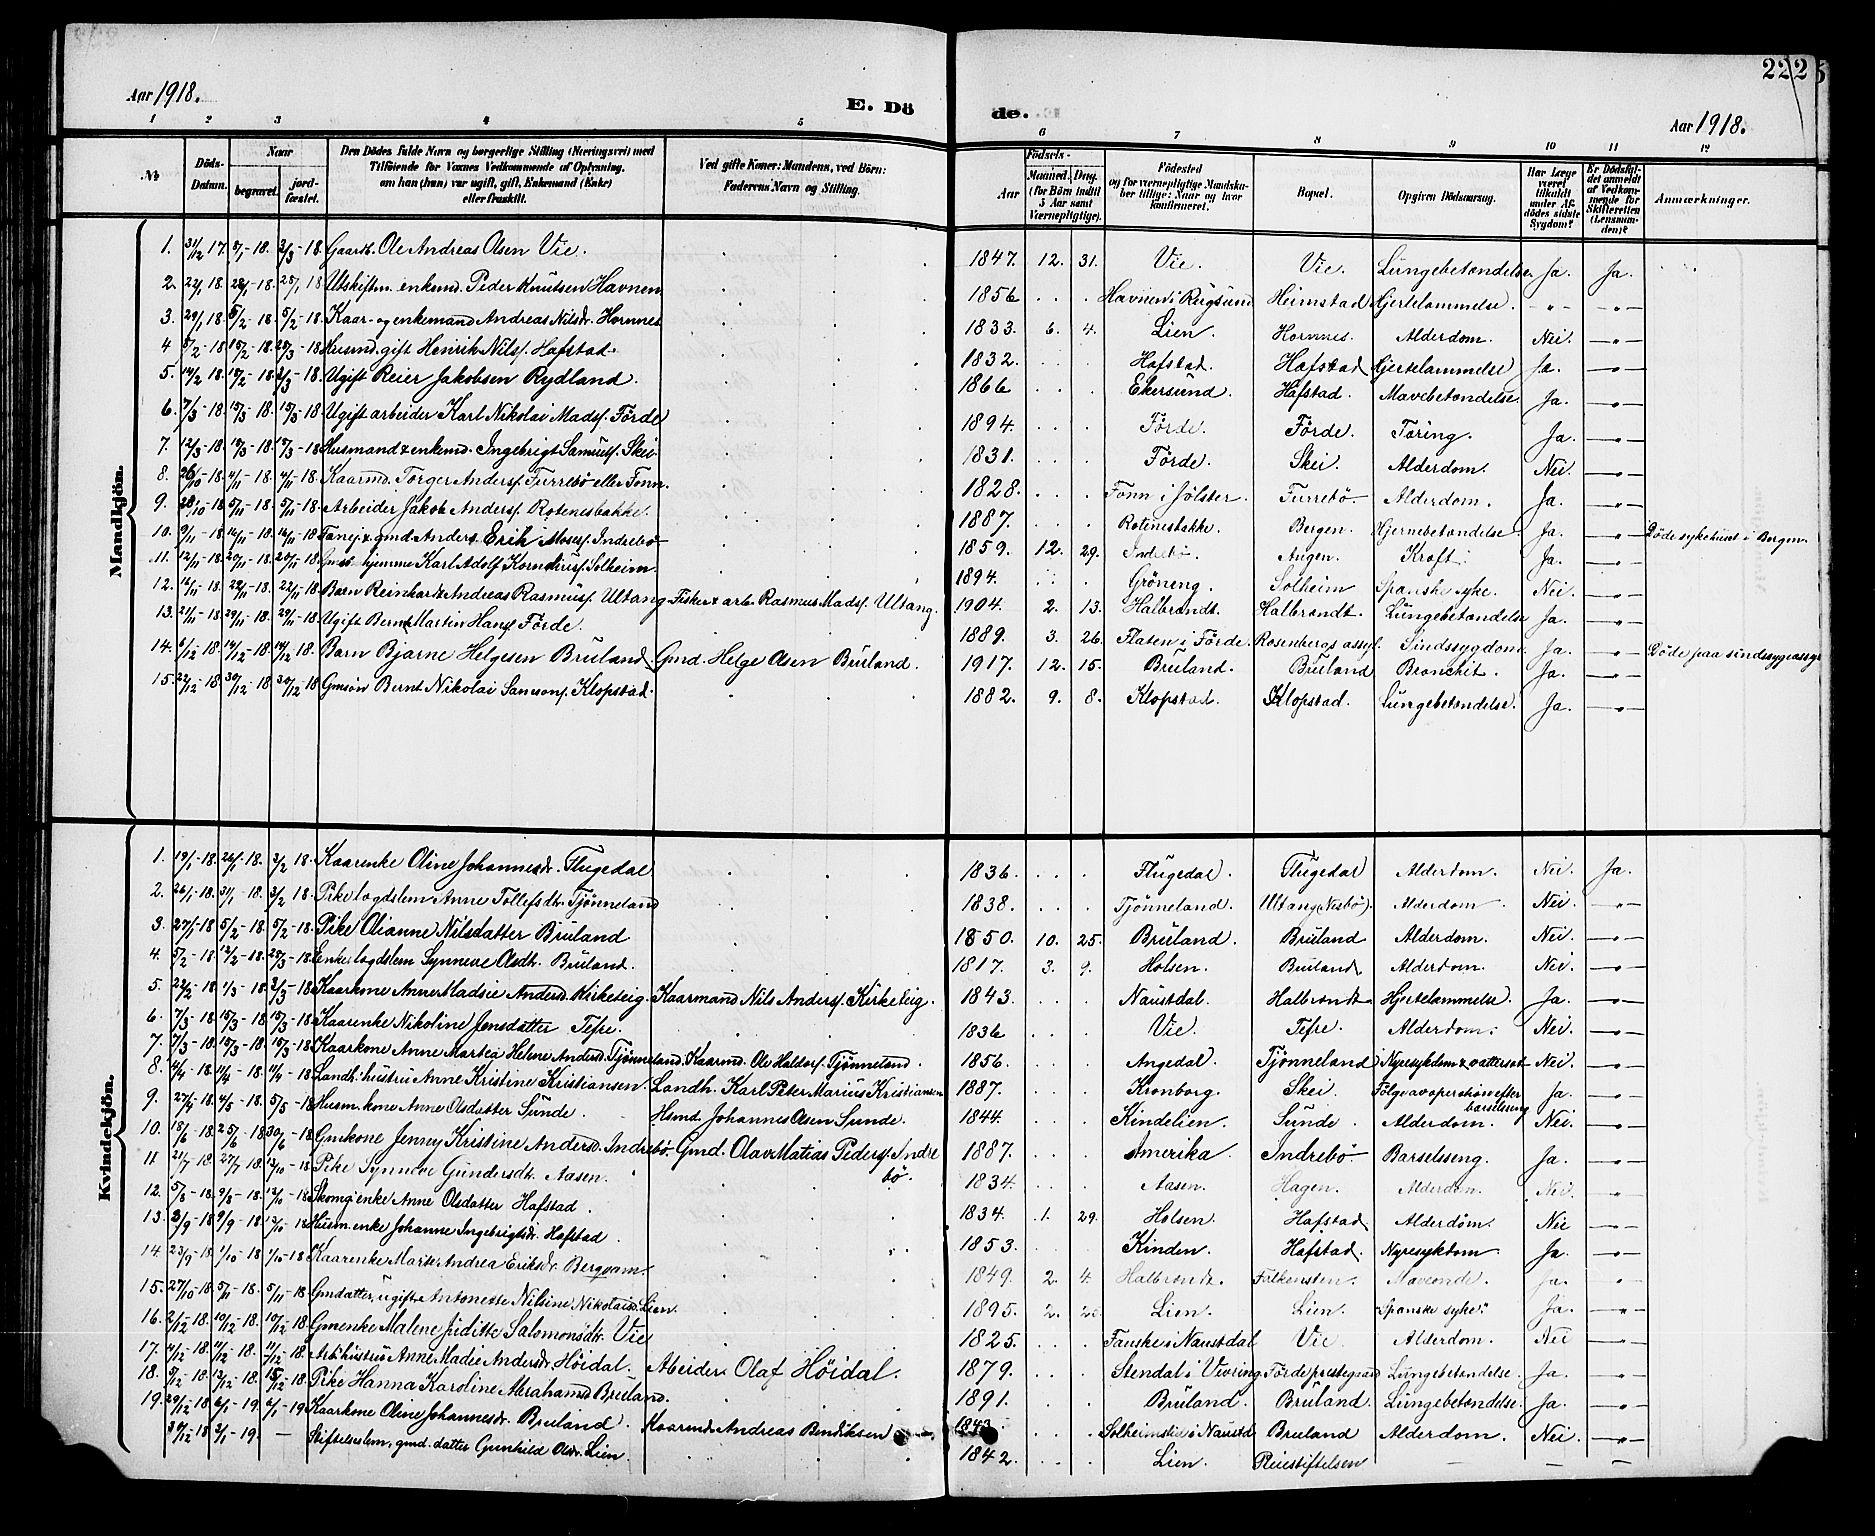 222
Aar 1918.
E. Dö
de.
Aar 1918.
1 2 3 4 5 6 7 8 9 10 11 12
№
Döds-Datum.
Naar
begravet.
jord-fæstet.
Den Dödes fulde Navn og borgerlige Stilling (Næringsvei) med
Tilföiende for Voxnes Vedkommende af Oplysning,
om han (hun) var ugift, gift, Enkemand (Enke)
eller fraskilt.
Ved gifte Koner: Mandens, ved Börn:
Faderens Navn og Stilling.
Födsels-
Aar
Maaned. Dag.
(for Börn indtil
5 Aar samt
Værnepligtige).
Födested
og for værnepligtige Mandska-
ber tillige: Naar og hvor
konfirmeret.
Bopæl.
Opgiven Dödsaarsag.
Har Læge
været
tilkaldt
under Af-
dödes sidste
Sygdom?
Er Dödsfal-
det anmeldt
af Vedkom-
mende for
Skifteretten
(Lensman-
den)?
Anmærkninger.
Mandkjön.
1. 31/12 17. 5/1-18. 3/3-18. Gaardb. Ole Andreas Olsen Vie. 1847. 12. 31. Vie. Vie. Lungebetændelse Ja. Ja.
2. 22/1 18. 28/1-18. 28/1 18 Utskiftm. enkemd. Peder Knutsen Havnen 1856 Havnen i Rugsund Heimstad Hjertelammelse. -"- -"-
3. 29/1 18. 5/2-18. 5/2-18. Kaar- og enkemand Andreas Nilsdr. Hornnes 1833. 6. 4. Lien. Hornnes. Alderdom. Nei. -"-
4 5/2-18 15/2-18. 25/3-18 Husmd. gift Henrik Nilsf. Hafstad. 1832. Hafstad. Hafstad Hjertelammelse) Ja. -"-
5. 14/2 18. 18/2-18. 3/3-18. Ugift Reier Jakobsen Rydland. 1866 Ekersund. Hafstad. Mavebetændelse. Ja. -"-
6. 7/3-18. 15/3-18. 15/3-18. Ugift arbeider Karl Nikolai Madsf. Förde 1894. Förde. Förde. Tæring. Ja. -"-
7. 12/3-18 18/3-18. 17/3-18 Husmand & enkemd. Ingebrigt Samuelsf. Skei. 1831. Förde. Skei. Alderdom. Nei. -"-
8. 26/10-18. 4/11-18. 4/11-18. Kaarmd. Torger Andersf. Furrebö eller Fonn. 1828. Fonn i Jölster. Furrebö. Alderdom. Ja. -"-
9. 28/10-18 5/11-18. 5/11-18. Arbeider Jakob Andersf. Rotenesbakke. 1887. Rotenesbakke. Bergen. Hjernebetændelse. Ja. -"- Döde sykehuset i Bergen
10. 9/11-18 16/11-18. 16/11-18 gmd Anders Erik Mosesf. Indrebö 1859. 12. 29. Indrebö. Angen. Kræft. Ja. -"-
11. 12/11-18. 20/11-18. 20/11-18. hjemme Karl Adolf Korneliusf. Solheim. 1894. Gröneng. Solheim Spanske syke. Nei. -"-
12. 16/11-18. 22/11-18. 22/11-18. Barn Reinhardt Andreas Rasmusf. Ultang Fisker & arb. Rasmus Madsf. Ultang. 1904. 2. 13. Halbrendt. Halbrendt. Lungebetændelse Ja. -"-
13. 21/11-18. 29/11-18. 29/11-18. Ugift Bernt Martin Hansf. Förde. 1889. 3. 26. Flaten i Förde. Rosenbergs assyl. Sindssygdom. Ja. -"- Döde paa sindssygeassyl
14. 6/12-18. 14/12-18. 14/12 18. Barn Bjarne Helgesen Bruland. Gmd. Helge Olsen Bruland. 1917. 12. 15. Bruland. Bruland Bronchit. Ja. -"-
15. 22/12-18. 30/12-18. 30/12-18 Gmsön Bernt Nikolai Samsonf. Klopstad. 1882. 9. 8. Klopstad. Klopstad. Lungebetændelse. Ja. -"-
Kvindekjön.
1. 19/1-18. 26/1-18. 3/2 18. Kaarenke Oline Johannesdr. Flugedal 1836. Flugedal. Flugedal Alderdom. Nei. Ja.
2. 26/1-18. 31/1 18. 3/2 18. Pike lægdslem Anne Tollefsdtr. Tjönneland 1838. Tjönneland. Ultang (Nesbö). Alderdom Nei -"-
3. 27/1-18 5/2-18. 5/2-18. Pike Olianne Nilsdatter Bruland 1850. 10. 25. Bruland. Bruland Alderdom. Nei. -"-
4. 5/2-18 12/2-18. 25/3-18. Enke lægdslem Synneve Olsdtr. Bruland. 1817. 3. 9. Holsen. Bruland. Alderdom. Nei. -"-
5. 22/2-18 1/3-18 3/3-18. Kaarkone Anne Madsie Andersd. Kirketeig. Kaarmand Nils Andersf. Kirketeig. 1843. Naustdal. Halbrendt Hjertelammelse. Ja. -"-
6. 7/3-18. 15/3-18 15/3-18. Kaarenke Nikoline Jensdatter Tefre. 1836 Vie. Tefre. Alderdom. Nei. -"-
7. 7/3-18. 15/3-18 15/3-18. Kaarkone Anne Martea Helene Andersd. Tjönneland. Kaarmd. Ole Haldorsf. Tjönneland. 1856. Angedal. Tjönneland Nyresykdom & vattersot Nei -"-
8. 4/4-18. 11/4-18 11/4-18 Landh. hustru Anne Kristine Kristiansen. Landh. Karl Peter Marius Kristiansen 1887. Kronborg. Skei. Fölge av operation efter barselseng Ja. -"-
9. 27/4-18. 4/5-18. 5/5-18 Husm. kone Anne Olsdatter Sunde. Husmd. Johannes Olsen Sunde. 1844. Kindelien. Sunde. Alderdom. Nei. -"-
10. 18/6-18. 25/6-18 30/6-18 Gmkone Jenny Kristine Andersd. Indrebö. Gmd. Olav Matias Pedersf. Indrebö. 1887. Amerika. Indrebö. Barselseng. Ja. -"-
11. 21/7 18. 27/7 18. 13/10-18 Pike Synneve Gundersdtr. Aasen. 1834. Aasen. Hagen. Alderdom. Nei. -"-
12. 5/8-18. 9/8-18. 13/10-18 Skomg. enke Anne Olsdatter Hafstad. 1834. 1. 29. Holsen. Hafstad. Alderdom. Nei -"-
13. 3/9-18 9/9-18. 13/10-18 Husm. enke Johanne Ingebrigtsdr. Hafstad. 1853. Kinden. Hafstad. Nyresykdom Ja. -"-
14. 23/9-18. 1/10-18 1/10-18 Kaarenke Marte Andrea Eriksdr. Bergvam. 1849. 2. 4. Halbrendt. Falkensten. Maveonde. Ja. -"-
15. 27/10-18. 5/11-18. 5/11-18 Gmdatter, ugift Antonette Nilsine Nikolaisd. Lien. 1895. 2. Lien. Lien. "Spanske syke." Ja. -"-
16. 2/12-18. 10/12-18. 10/12-18 Gmenke Malene Juditte Salomonsdtr. Vie 1825. Fanske i Naustdal Vie. Alderdom. Nei -"-
17. 4/12-18. 11/12-18. 11/12-18. Arb. hustru Anne Madie Andersdr. Höidal. Abeider Olaf Höidal. 1879. Stendal i Vevring Förde prestegaard Lungebetændelse. Ja. -"-
18. 9/12-18. 13/12-18. 15/12-18. Pike Hanna Karoline Abrahamsd. Bruland. 1891. Bruland. Bruland. Lungebetændelse. Ja. -"-
19. 29/12-18 6/1-19. 6/1-19 Kaarkone Oline Johannesdr. Bruland. Kaarmd. Andreas Bendiksen 1843. Solheimslien i Naustd. Bruland Alderdom. Nei. -"-
30/12-18 3/1-19. — Stiftelseslem, gmd. datter Gunhild Olsdr. Lien. 1842. Lien. Reiestiftelsen — —